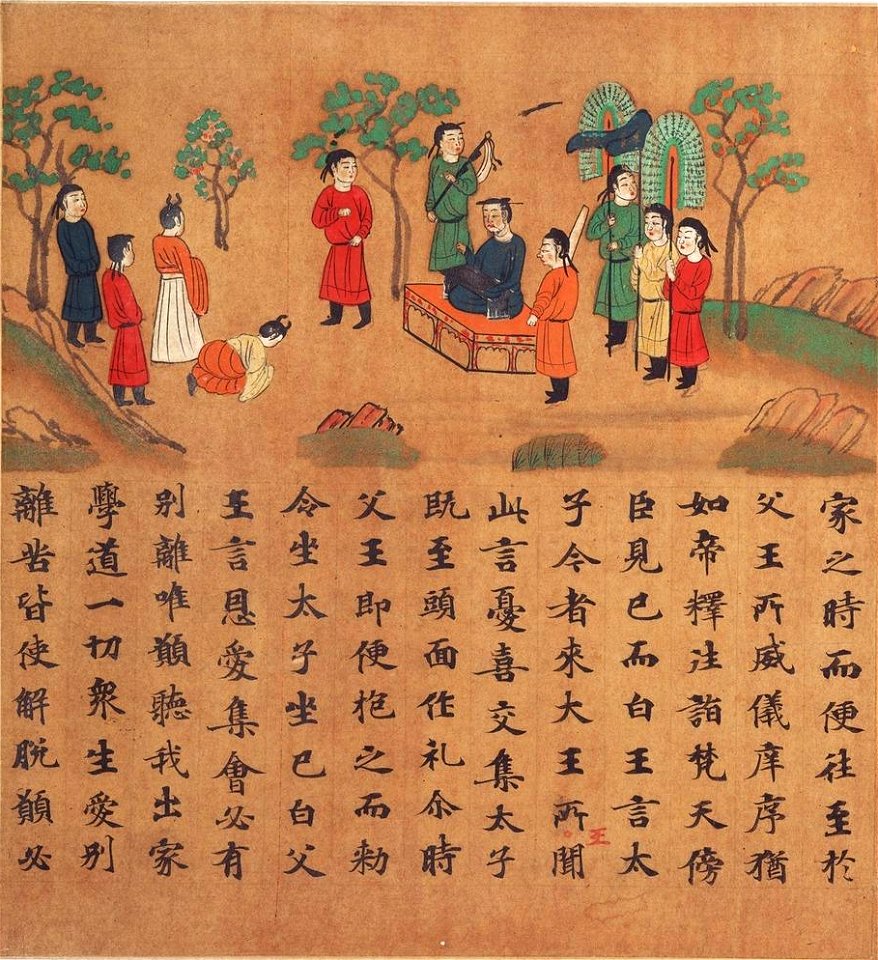 家之時而便往至於
父王所威儀庠序猶
如帝釋往詣梵天傍
臣見已而白王言太
子今者來大王所聞
王
此言憂喜交集太子
既至頭面作礼尒時
父王即便抱之而勑
令坐太子坐已白父
王言恩愛集會必有
别離唯願聽我出家
學道一切衆生愛别
離苦皆使解脱願必